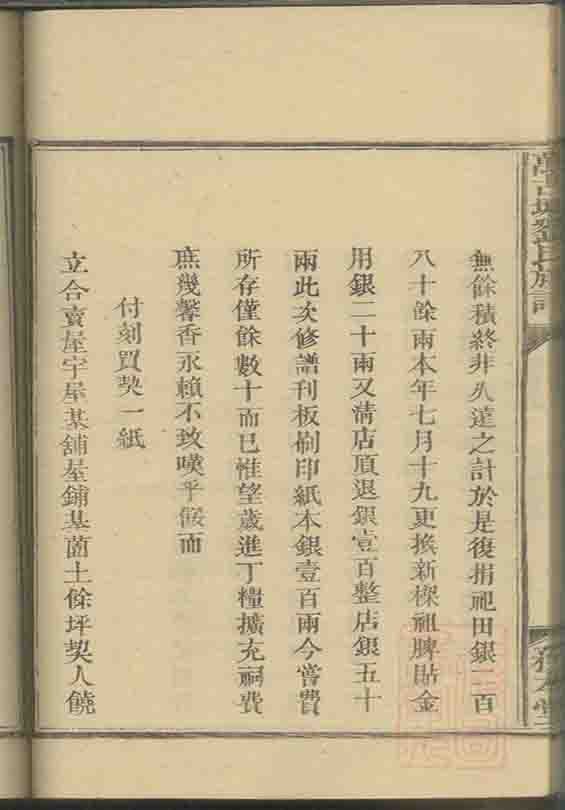 無餘積終非久遠之計於是復捐祀田銀二百
八十餘兩本年七月十九更換新樑祖牌貼金
用銀二十兩又溝店頂退銀壹百整店銀五十
兩此次修譜刊板刷印紙本銀壹百兩今嘗費
所存僅餘數十而已惟望歲進丁糧擴充嗣費
庶幾馨香永賴不致嘆乎餒而
付刻買契一紙
立合賣屋宇屋基舖屋鋪基薗土餘坪契人饒